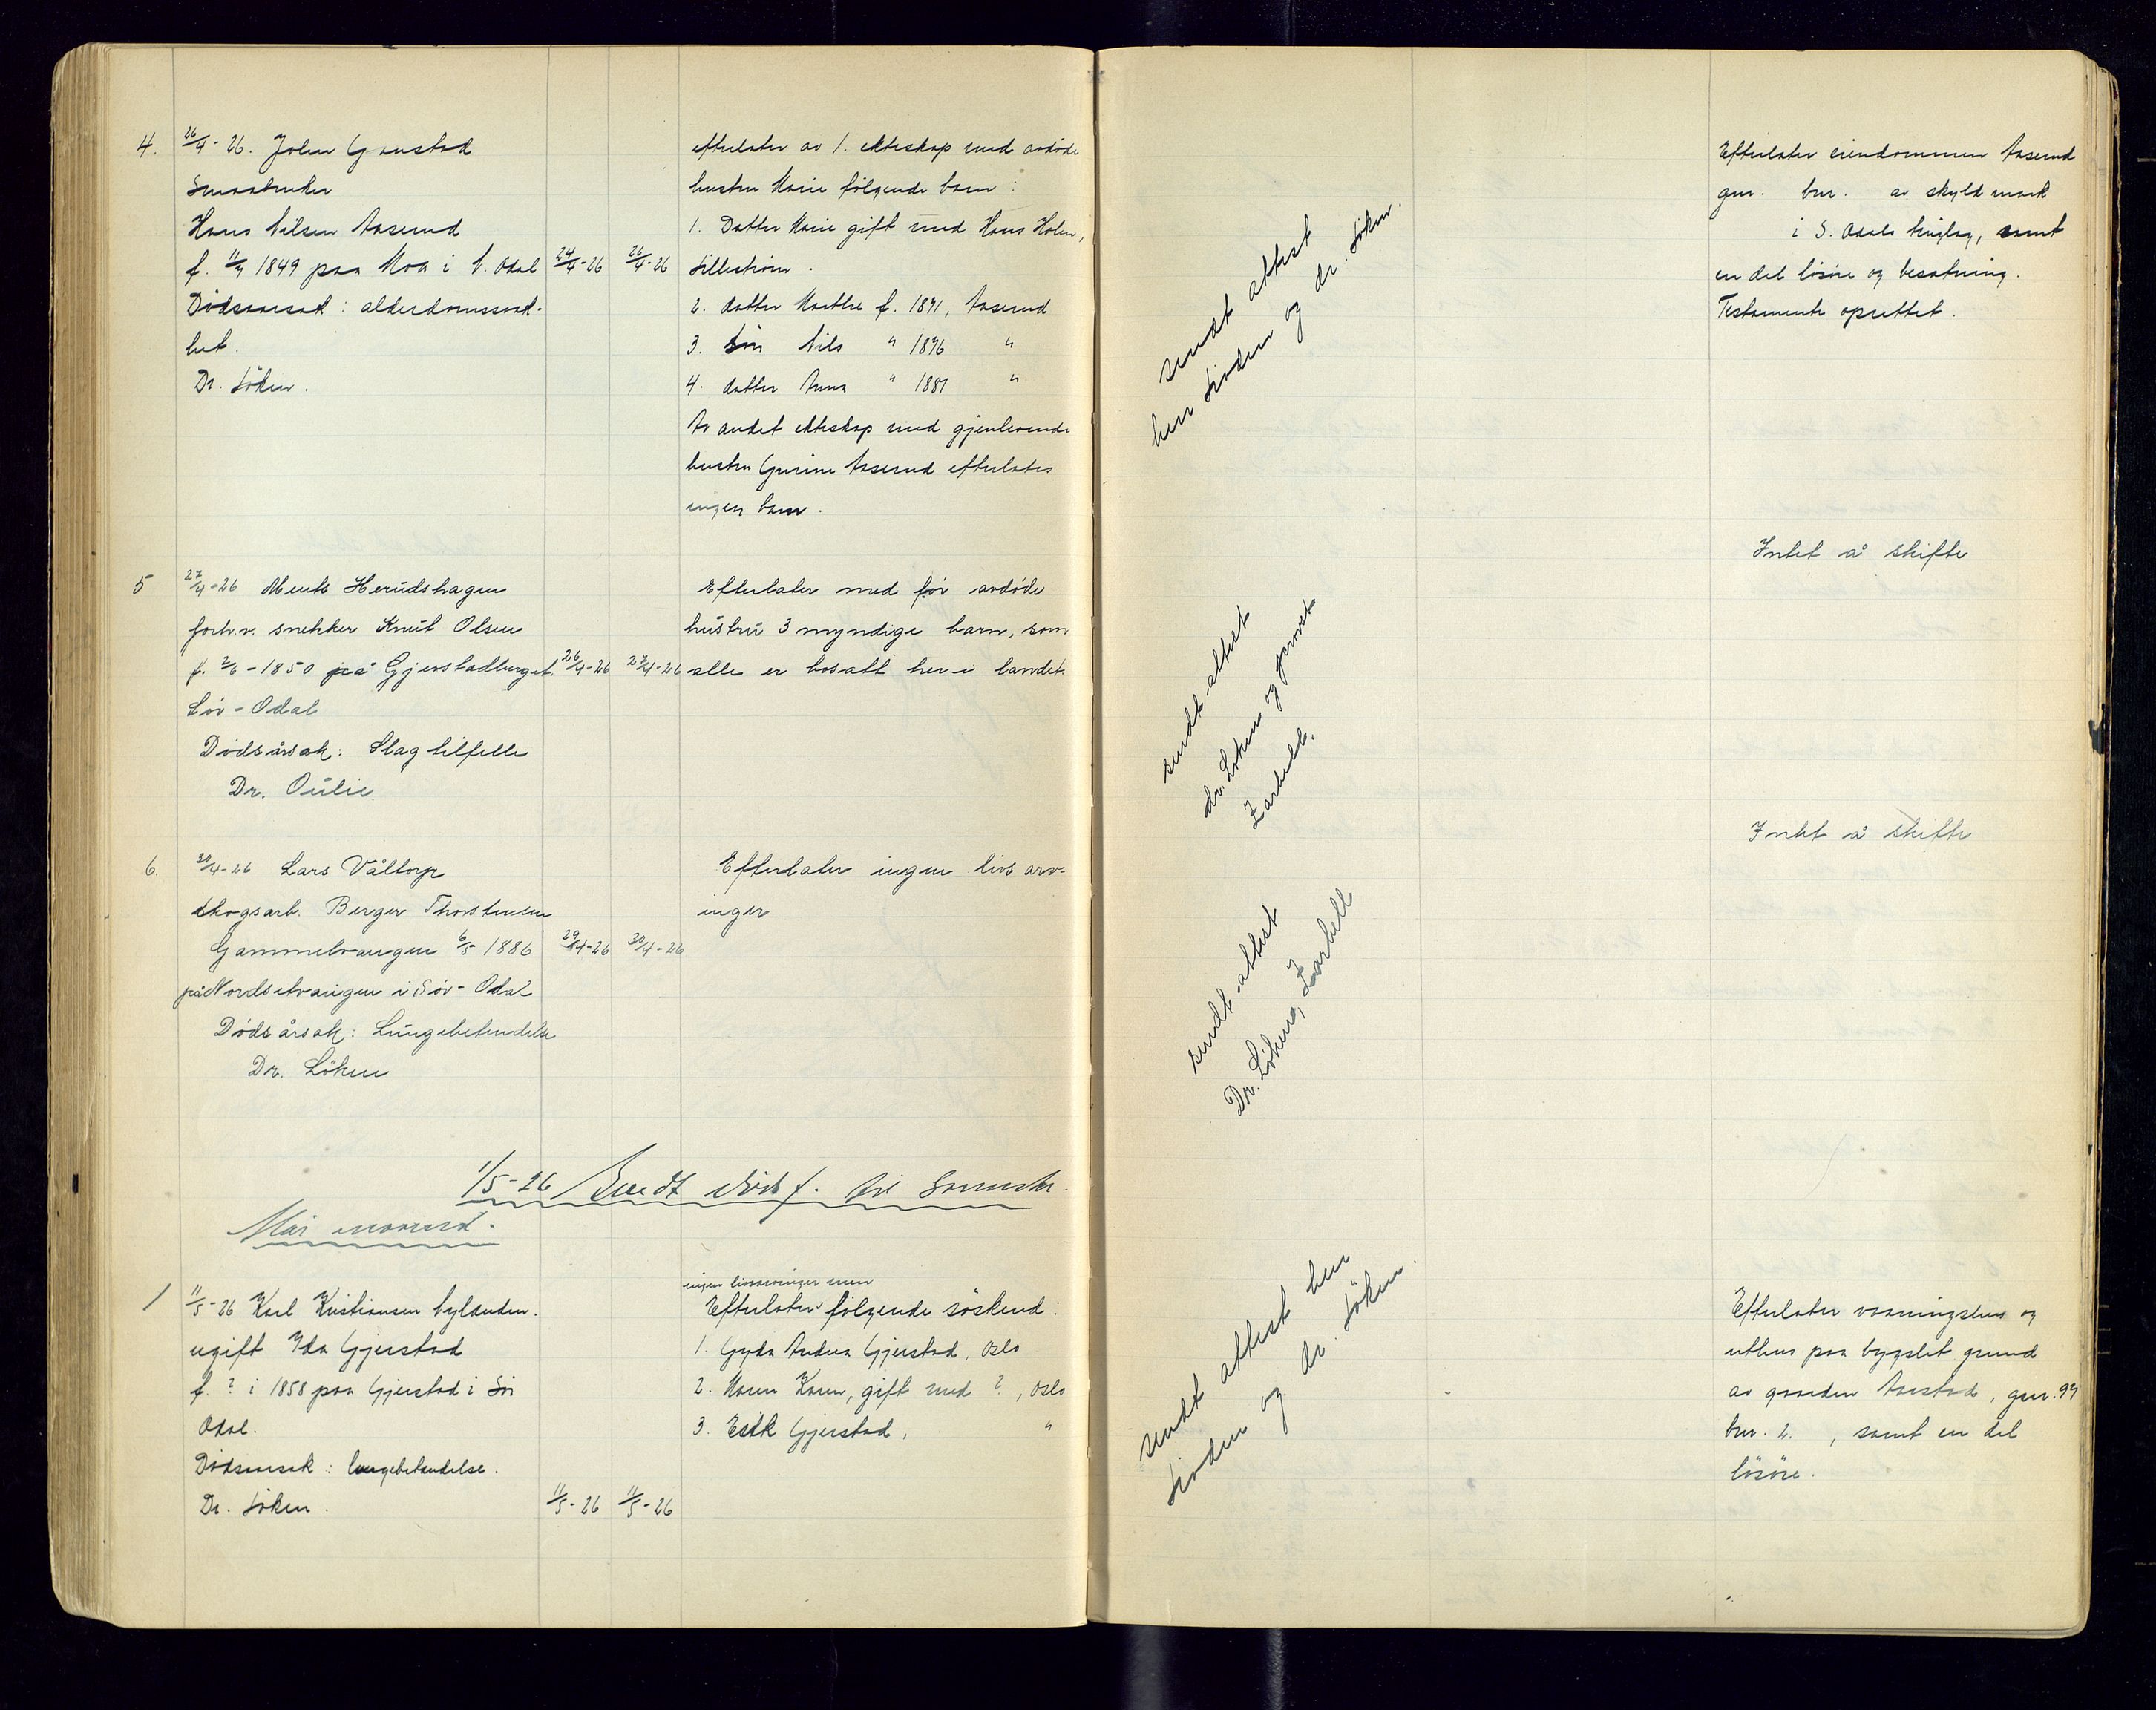 4. 26/4-26. Johan Gaustad
Smaabruker
Hans Nilsen Aaserud
f. 11/9 1849 paa Moa i N. Odal 24/4-26 26/4-26
Dödsaarsak: alderdomssvak-
het.
Dr. Löken.
efterlater av 1. ekteskap med avdöde
hustru Marie fölgende barn:
1. Datter Marie gift med Hans Holm,
Lilleström.
2. datter Marthe f. 1871, Aaserud
3. Sön Nils " 1876 "
4. datter Anna " 1881 "
Av andet ekteskap med gjenlevende
hustru Gurine Aaserud efterlates
ingen barn.
5 27/4-26 Ments Herudshagen
forh.v. snekker Knut Olsen
f. 2/6-1850 på Gjerstadberget 26/4-26 27/4-26
Sör-Odal
Dödsårsak: Slagtilfelle
Dr. Oulie
Efterlater med för avdöde
hustru 3 myndige barn, som
alle er bosatt her i landet.
6. 30/4-26 Lars Våltorp
skogsarb. Berger Thorstensen
Gammelvangen 6/5 1886 29/4-26 30/4-26
på Nordsetvangen i Sör-Odal
Dödsårsak: Lungebetendelse
Dr. Löken
Efterlater ingen livsarv-
inger
1/5-26 Sendt dödsf. til Sorensk.
Mai maaned.
1 11/5-26 Karl Kristiansen Nylenden.
ugift Ida Gjerstad
f. ? i 1858 paa Gjerstad i Sör
Odal.
Dödsaarsak: lungebetendelse.
Dr. Löken. 11/5-26 11/5-26
ingen livsarvinger men
Efterlater fölgende söskend:
1. Gyda Andrea Gjerstad, Oslo
2. Maren Karen, gift med ?, Oslo
3. Erik Gjerstad, "
sendt attest
herr Froden og dr. Löken.
sendt attest
dr. Löken og
sendt attest
Dr. Löken,
sendt attest herr
Froden og dr. Löken.
Efterlater eiendommen Aaserud
gnr. bnr. av skyld mark
i S. Odals tinglag, samt
en del lösöre og besætning.
Testamente oprettet.
Intet å skifte
Intet å skifte
Efterlater vaaningshus og
uthus paa bygslet grund
av gaarden Aarstad, gnr. 97
bnr. 2. , samt en del
lösöre.